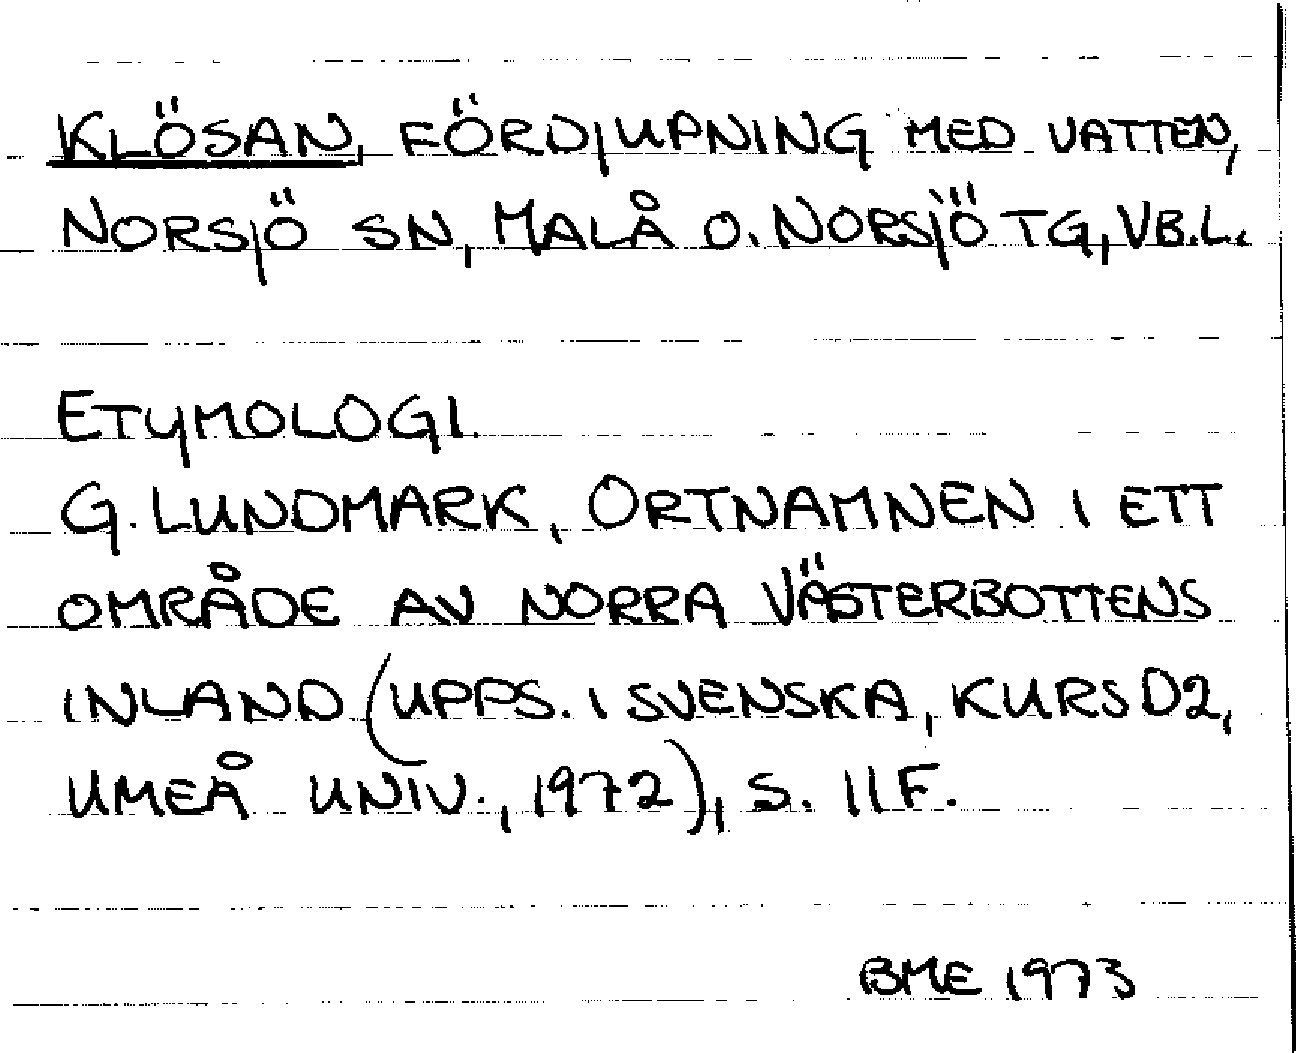 KLÖSAN, FÖRDJUPNING MED VATTEN,
NORSJÖ SN, MALÅ O. NORSJÖ TG, VB.L.
ETYMOLOGI.
G. LUNDMARK, ORTNAMNEN I ETT
OMRÅDE AV NORRA VÄSTERBOTTENS
INLAND (UPPS. I SVENSKA, KURS D2,
UMEÅ UNIV., 1972), S. 11F.
BME 1973